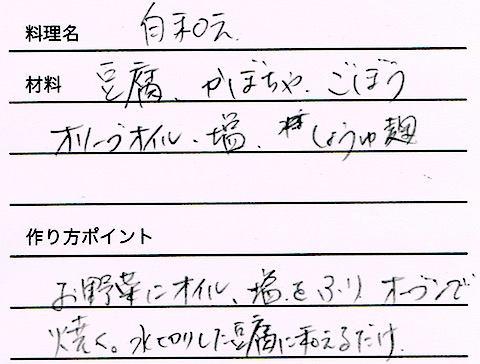 料理名 白和え
材料 豆腐、かぼちゃ、ごぼう
オリーブオイル、塩、しょうゆ麹
作り方ポイント
お野菜にオイル、塩をふり オーブンで
焼く。水切りした豆腐に和えるだけ。